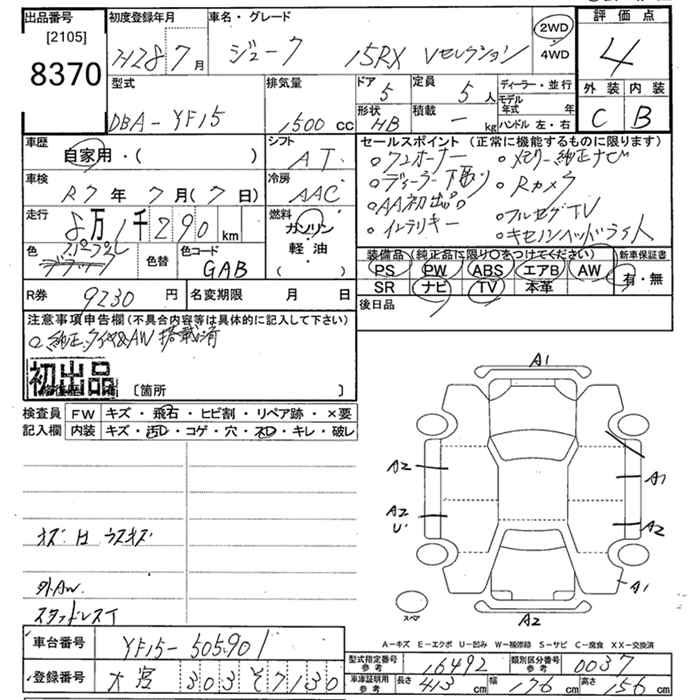 出品番号
[2105]
8370
初度登録年月
H28 7月
車名・グレード
ジューク 15RX Vセレクション
2WD
4WD
評価点
4
外装 内装
C B
型式
DBA-YF15
排気量
1500 cc
ドア 5
形状 HB
定員 5 人
積載 - kg
ディーラー・並行
モデル年式 年
ハンドル 左・右
車歴
自家用・( )
シフト
AT
車検
R7年 7月(7日)
冷房
AAC
走行
8万1千290 km
燃料
ガソリン
軽・油
( )
色
色替
色コード
GAB
R券 9230 円
名変期限 月 日
セールスポイント(正常に機能するものに限ります)
○ワンオーナー ○メモリー純正ナビ
○ディーラー下取り ○Rカメラ
○AA初出品 ○フルセグTV
○インテリキー ○キセノンヘッドライト
装備品(純正品に限り○をつけてください)
新車保証書
PS PW ABS エアB AW
SR ナビ TV 本革
有・無
後日品
注意事項申告欄(不具合内容等は具体的に記入して下さい)
○純正タイヤ&AW 搭載済
初出品
〔箇所 〕
検査員記入欄
FW キズ・飛石・ヒビ割・リペア跡・×要
内装 キズ・汚レ・コゲ・穴・スレ・キレ・破レ
A1
A2
A1
A2
U'
A2
A1
スペア
A2
オズ H ウスキズ
外AW
スタッドレスT
A-キズ E-エクボ U-凹み W-補修跡 S-サビ C-腐食 XX-交換済
車台番号
YF15-505901
登録番号
大宮 303 そ7130
型式指定番号 参考 16492
類別区分番号 参考 0037
車庫証明用 参考 長さ 413 cm 幅 176 cm 高さ 156 cm